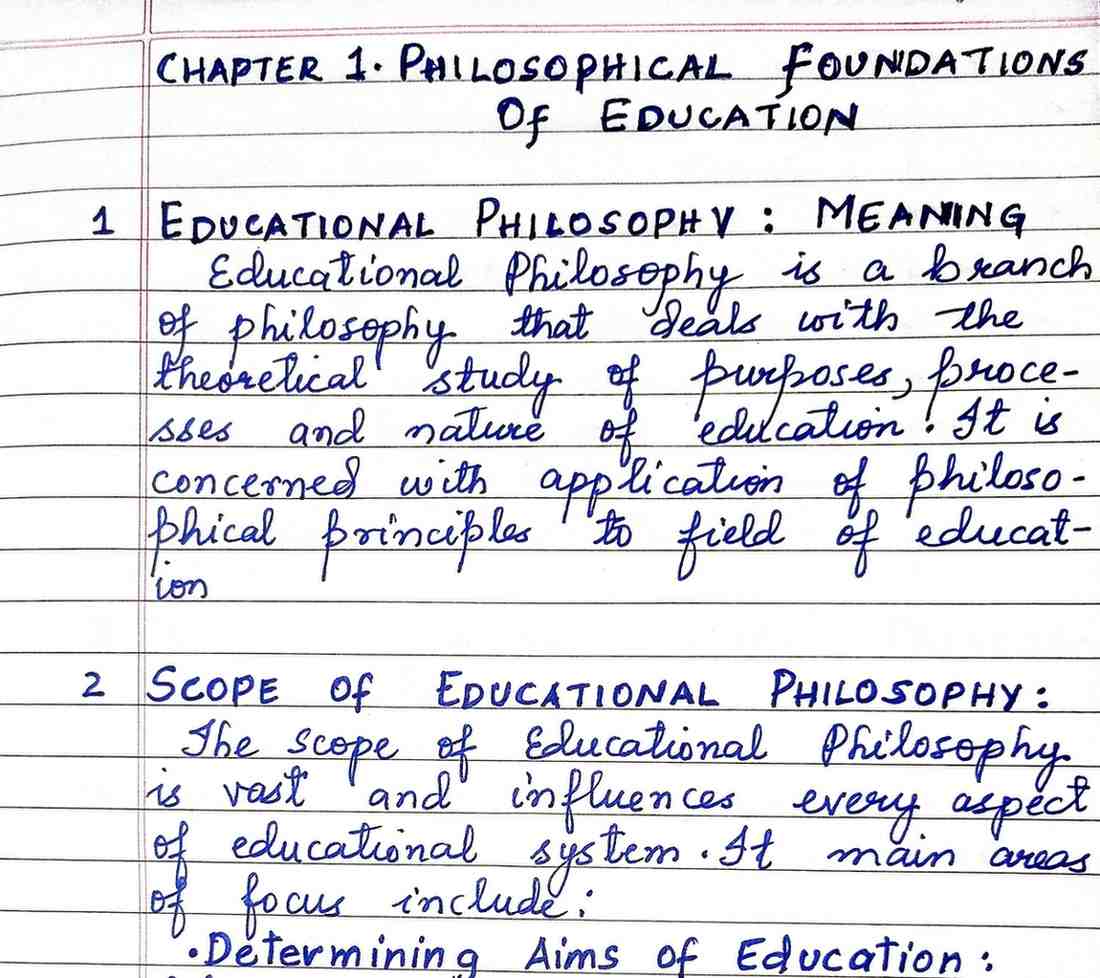 CHAPTER 1. PHILOSOPHICAL FOUNDATIONS
OF EDUCATION
1 EDUCATIONAL PHILOSOPHY : MEANING
Educational Philosophy is a branch
of philosophy that deals with the
theoretical study of purposes, proce-
sses and nature of education. It is
concerned with application of philoso-
phical principles to field of educat-
ion
2 SCOPE OF EDUCATIONAL PHILOSOPHY :
The scope of Educational Philosophy
is vast and influences every aspect
of educational system. It main areas
of focus include :
• Determining Aims of Education :